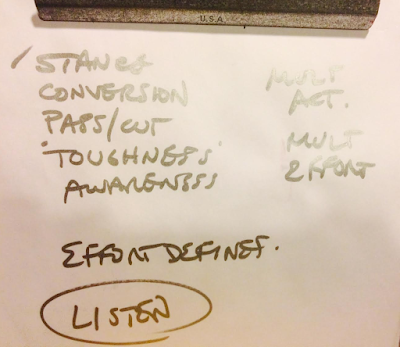 U.S.A.
STANCE
CONVERSION
PASS/CUT
'TOUGHNESS'
AWARENESS
MULT
ACT.
MULT
EFFORT
EFFORT DEFINES.
LISTEN